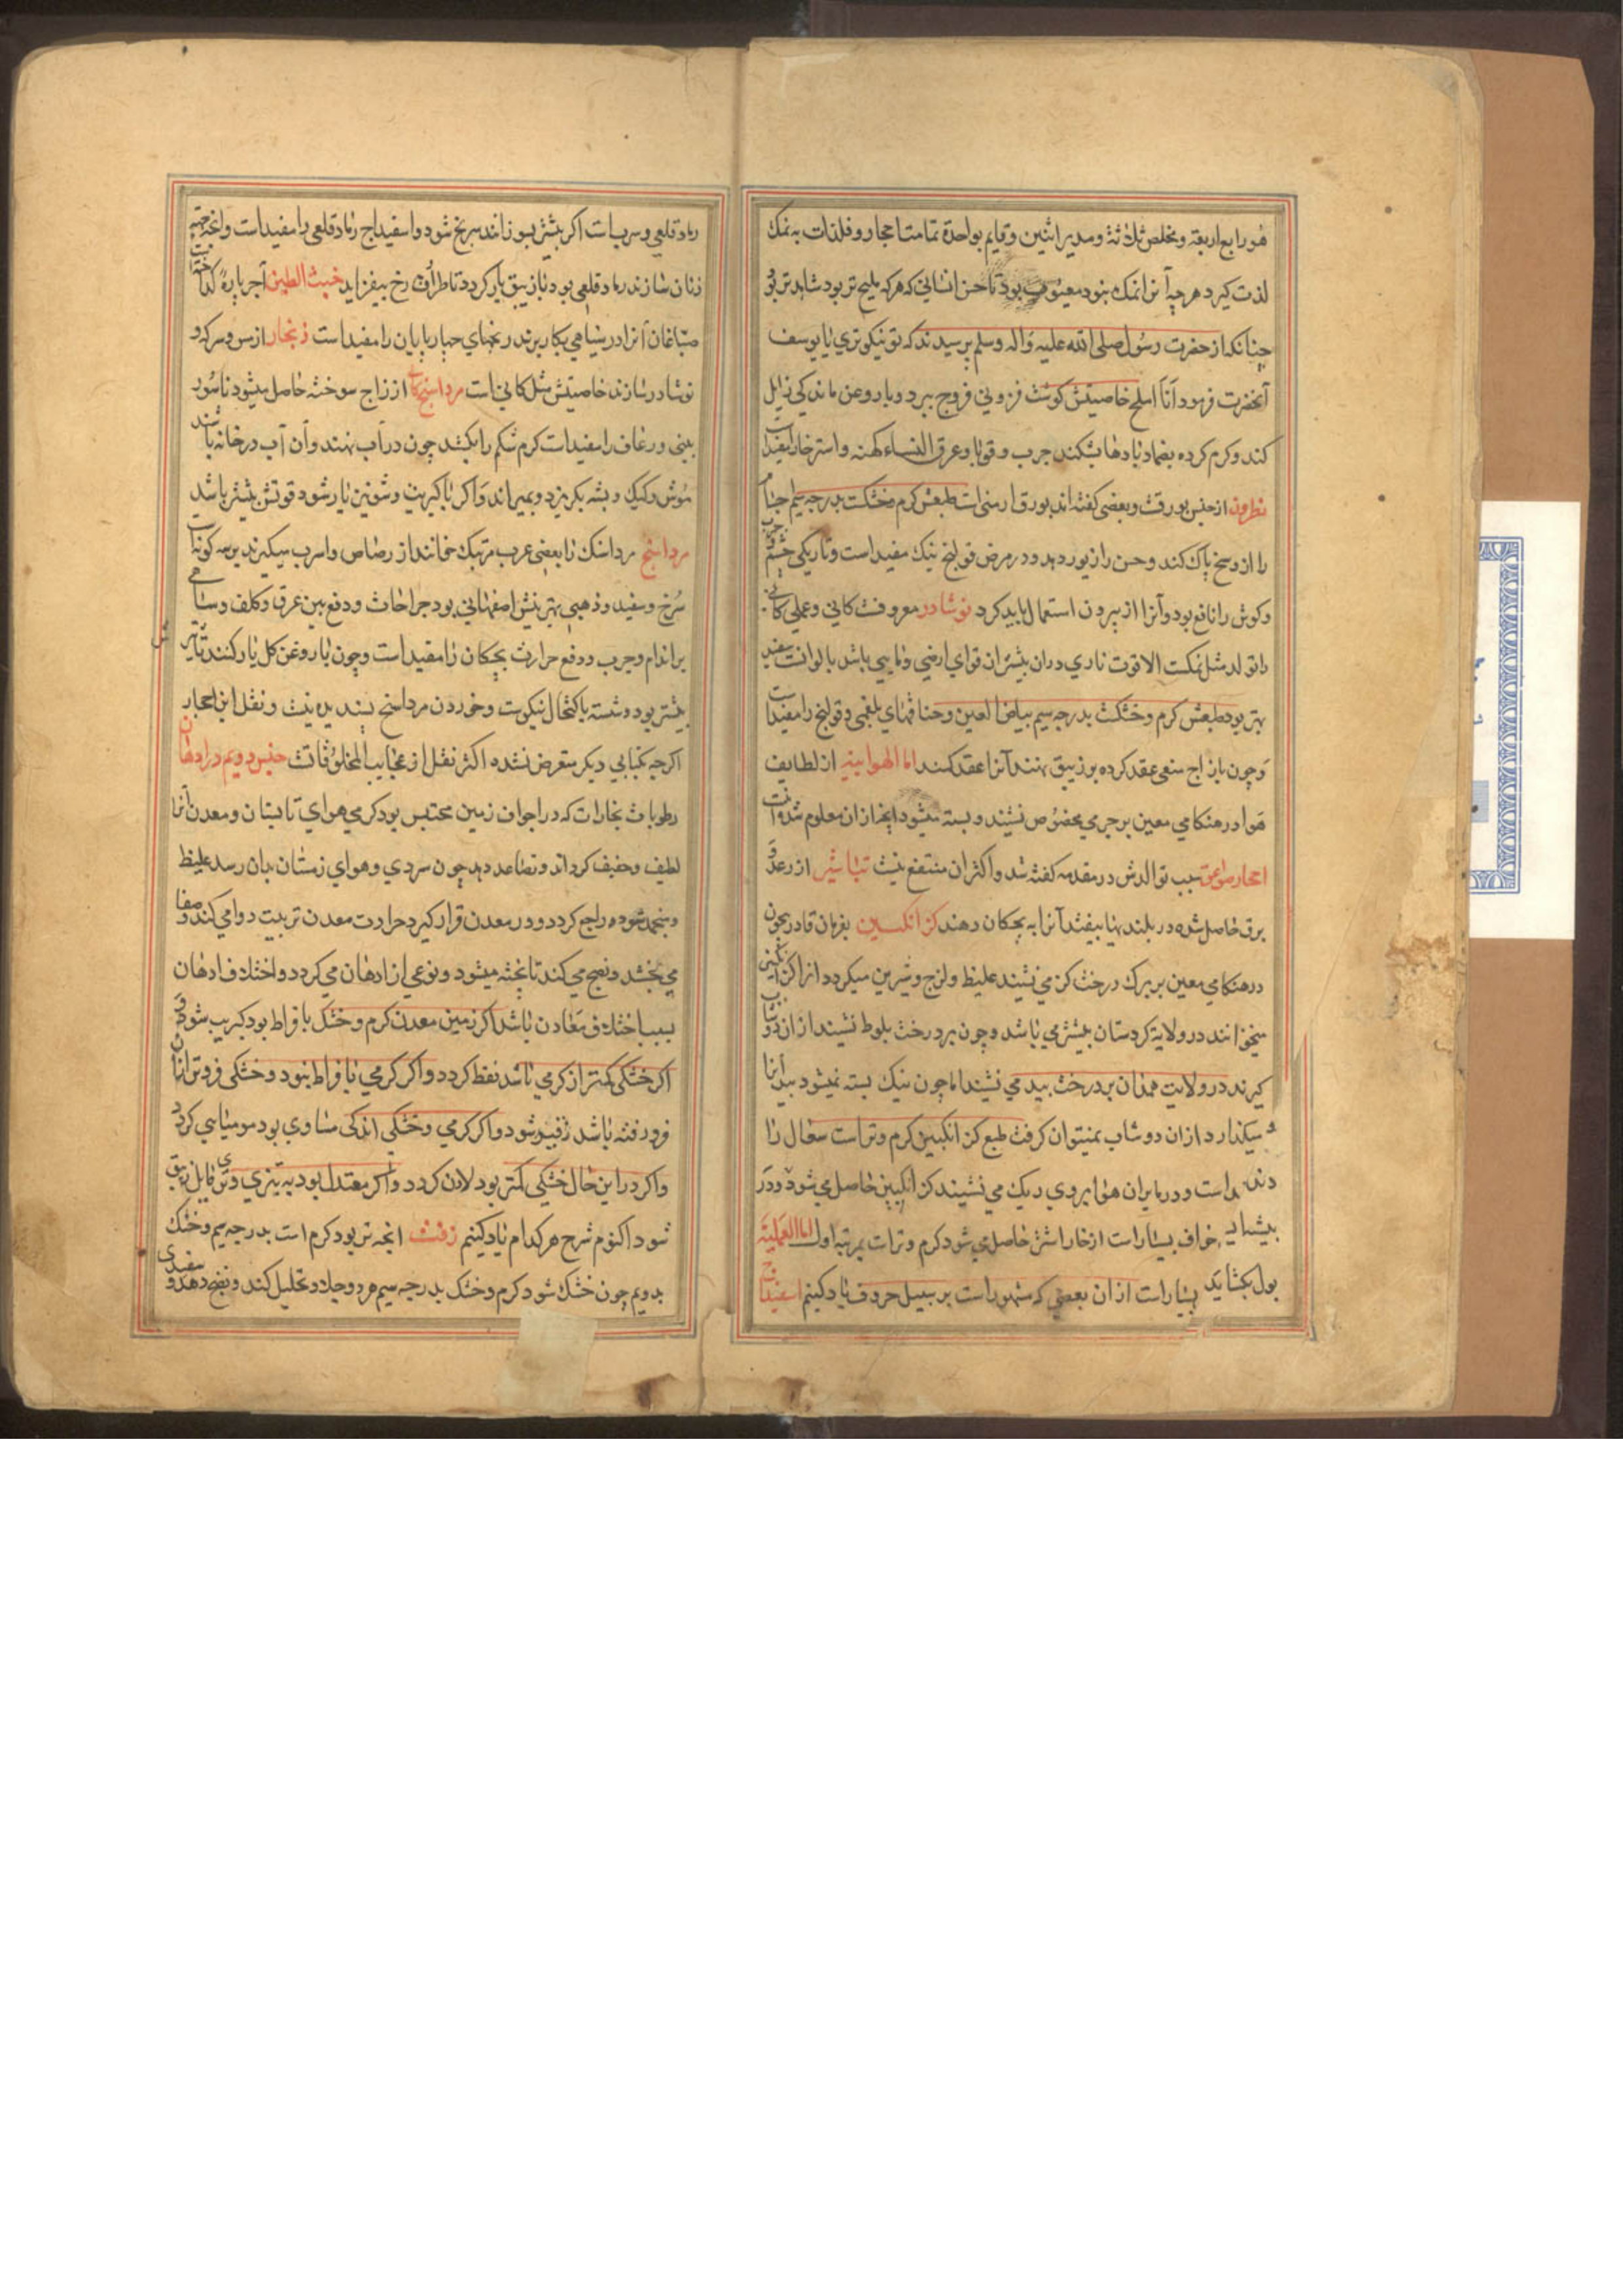 هو رابع اربعة و مخلص ثلاثة و مدبر اثنین و قایم بواحدة تمامت احجار و فلذات به نمک
لذت کیرد هرچه آنرا نمک نبود معیوب بود تا حسن انسانی که هرکه ملیح تر بود شاهدتر بو
چنانکه از حضرت رسول صلی الله علیه واله وسلم پرسیدند که تو نیکوتری یا یوسف
آنحضرت فرمود انا املح خاصیتش کوشت فزونی فروج ببرد و با روغن ماندکی زایل
کند و کرم کرده بضماد بادها بشکند جرب و قوبا و عرق النساء کهنه و استرخا را مفیدا
نطرون از جنس بورقست و بعضی کفته اند بورق ارمنی است طبعش کرم و خشکست بدرجه سیم
را از وسخ پاک کند و حسن را زیور دهد و در مرض قولنج نیک مفید است و تاریکی چشم
و کوش را نافع بود و آنرا از بیرون استعمال باید کرد نوشادر معروفست کانی و عملی
در تولد مثل نمکست الا قوت ناری در ان بیشتر ان قوای ارضی و مایی باشد بالوانست سفید
بهتر بود طبعش کرم و خشکست بدرجه سیم بیاض العین و خناقهای بلغمی و قولنج را مفیدا
و چون با زاج سعی عقد کرده بر زیبق نهند آنرا عقد کند اما الهوائیه از لطایف
هوا در هنکامی معین بر جری مخصوص نشیند و بسته میشود انچه از ان معلوم شد
احجار صواعق سبب توالدش در مقدمه کفته شد و اکثر ان منتفع نیست تباشیر از رعد و
برق حاصل شده در بلندیها بیفتد آنرا به بچکان دهند کزانکبین بفرمان قادر بیچون
در هنکامی معین بر برک درخت کز می نشیند غلیظ و لزج و شیرین میکردد از اکزانکبین
میخوانند در ولایة کردستان بیشتر می باشد و چون بر درخت بلوط نشیند از ان دوشا
کیرند در ولایت همدان بر درخت بید می نشیند اما چون نیک بسته نمیشود بید
میکذارد از ان دوشاب نمیتوان کرفت طبع کزانکبین کرم و تر است سعال را
است و در بیابان هوا بر روی دیک می نشیند کزانکبین حاصل می شود و در
خواف بسیار است از خار اشتر حاصل می شود کرم و تر است بمرتبه اول اما العملیة
بول بکشاید بسیار است از ان بعضی که مشهور است بر سبیل حروف یاد کنیم اسفیداج
رماد قلعی و سرب است اکر بیشتر بسوزانند سرنج شود و اسفیداج رماد قلعی را مفید است و انچه جهة
زنان سازند رماد قلعی بود با زیبق یار کردد تا طراوت رخ بیفزاید خبث الطین آجرپاره
صباغان آنرا در سیاهی بکار برند ریمهای چهارپایان را مفید است زنجار از مس و سرکه و
نوشادر سازند خاصیتش مثل کانی است مرداسنج از زاج سوخته حاصل میشود ناسور
بینی و رعاف را مفید است کرم شکم را بکشد چون در آب نهند و آن آب در خانه پاشند
موش و کیک و پشه بکریزد و بمیراند و اکر با کبریت و شونیز یار شود قوتش بیشتر باشد
مرداسنج مرداسنک را بعضی عرب مرتک خوانند از رصاص و اسرب میکیرند بر سه کونه
سرخ و سفید و ذهبی بهترینش اصفهانی بود جراحات و دفع بین عرق و کلف و سیاهی
بر اندام و جرب و دفع حرارت بچکان را مفید است و چون با روغن کل یار کنند تاثیر
بیشتر بود و شسته با کتحال نیکوست و خوردن مرداسنج پسندیده نیست و نقل این احجار
اکرچه بکتابی دیکر متعرض نشده اکثر نقل از عجایب المخلوقاتست جنس دویم در ادهان
رطوبات بخارات که در اجواف زمین محتبس بود کرمی هوای تابستان و معدن آنرا
لطیف و خفیف کرداند و تصاعد دهد چون سردی و هوای زمستان بدان رسد غلیظ
و منجمد شود راجع کردد و در معدن قرار کیرد حرارت معدن تربیت دوامی کند و صفا
می بخشد و نضج می کند تا پخته میشود و نوعی از ادهان می کردد و اختلاف ادهان
بسبب اختلاف معادن باشد اکر زمین معدن کرم و خشک بافراط بود کبریت شود و
اکر خشکی کمتر از کرمی باشد نفط کردد و اکر کرمی بافراط نبود و خشکی فروتر از ان
فرورفته باشد زفت شود و اکر کرمی و خشکی اندکی مساوی بود مومیایی کردد
و اکر در این حال خشکی کمتر بود لادن کردد و اکر معتدل بود به تیزی و تری قابل زیبق
شود اکنون شرح هر کدام یاد کنیم زفت انچه تر بود کرم است بدرجه سیم و خشک
بدویم چون خشک شود کرم و خشک بدرجه سیم هر دو جلا و تحلیل کند و نضج دهد و سفیدی